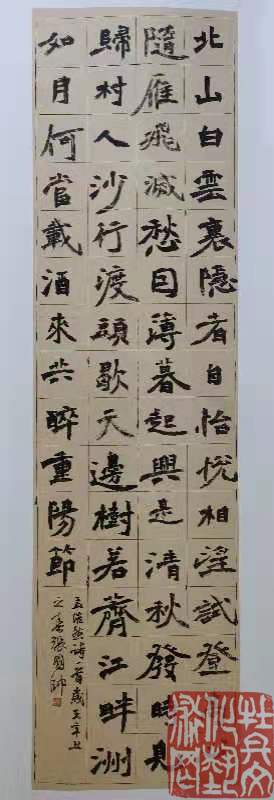 北山白雲裏隱者自怡悅相望試登
隨雁飛滅愁因薄暮起興是清秋發時見
歸村人沙行渡頭歇天邊樹若薺江畔洲
如月何當載酒來共醉重陽節
孟浩然詩一首歲在辛丑
之春張國帥